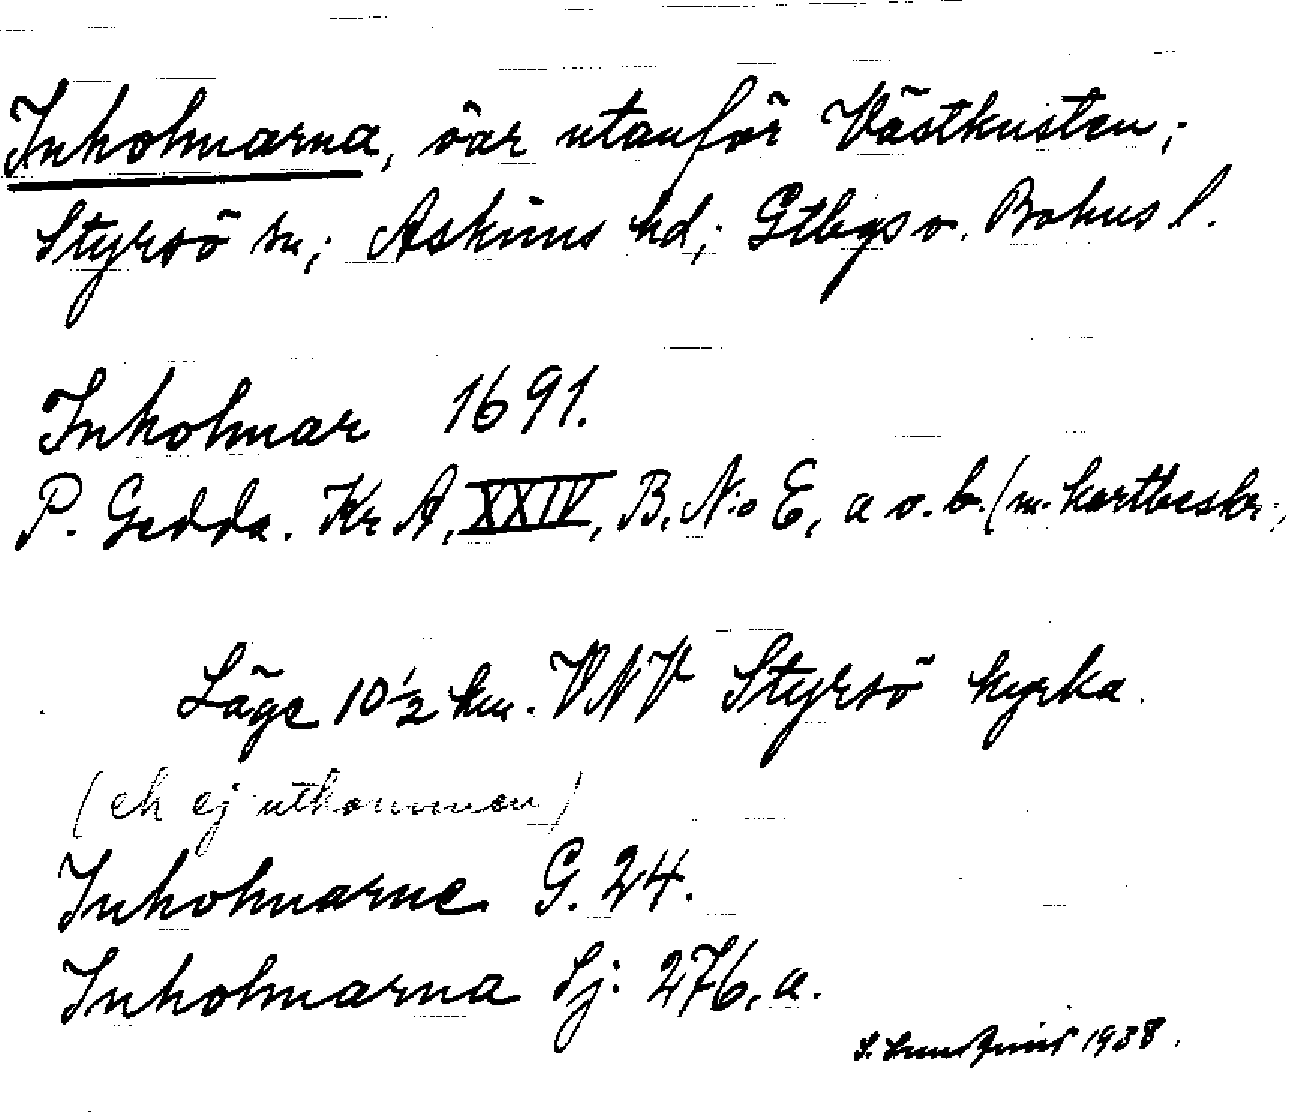 Inholmarna, öar utanför Västkusten;
Styrsö sn; Askims hd; Gtbgs o. Bohus l.
Inholmar 1691.
P. Gedda. Kr A, XXIV, B. N:o E, a o. b. (m. kartbeskr.,
Läge 10 1/2 km. VNV Styrsö kyrka.
(ek ej utkommen)
Inholmarne G. 24.
Inholmarna Sj: 276, a.
1938.